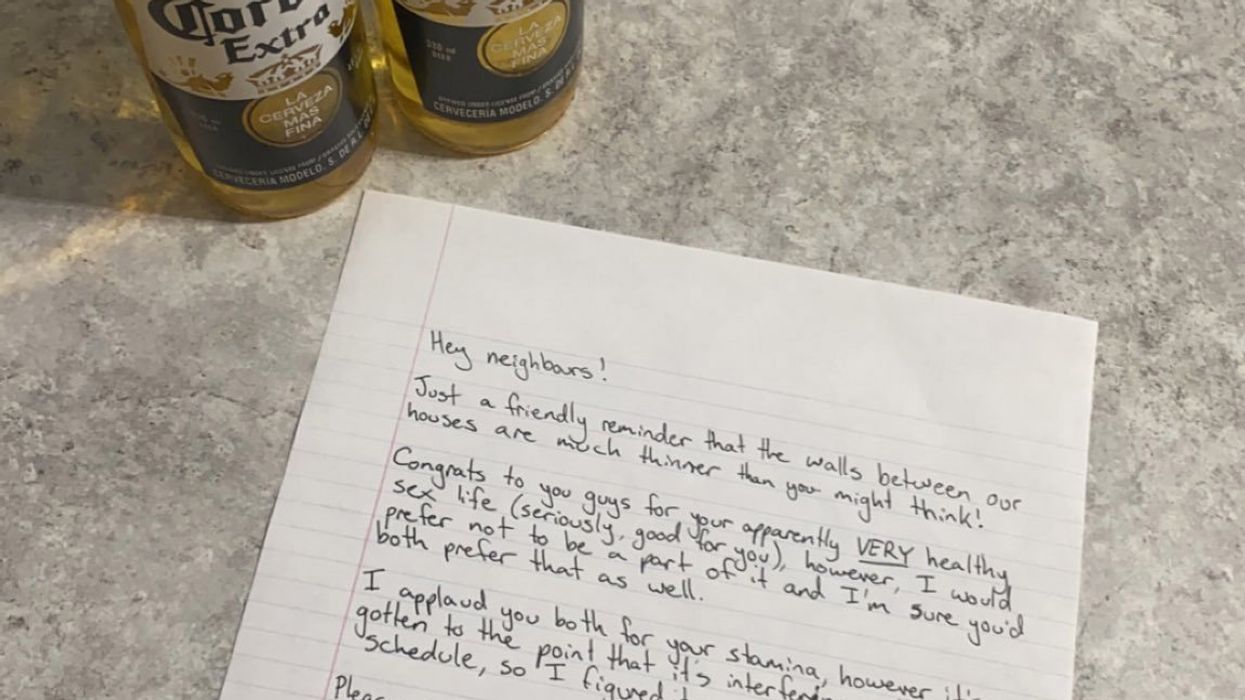 Corona
Extra
LA
CERVEZA
MAS
FINA
CERVECERÍA MODELO, S. DE R.L. DE
330 ml
BEER
LA
CERVEZA
MAS
FINA
BREWED UNDER LICENSE FROM /
CERVECERÍA MODELO, S. DE
Hey neighbours!
Just a friendly reminder that the walls between our
houses are much thinner than you might think!
Congrats to you guys for your apparently VERY healthy
sex life (seriously, good for you), however, I would
prefer not to be a part of it and I'm sure you'd
both prefer that as well.
I applaud you both for your stamina, however it's
gotten to the point that it's
schedule, so I figured